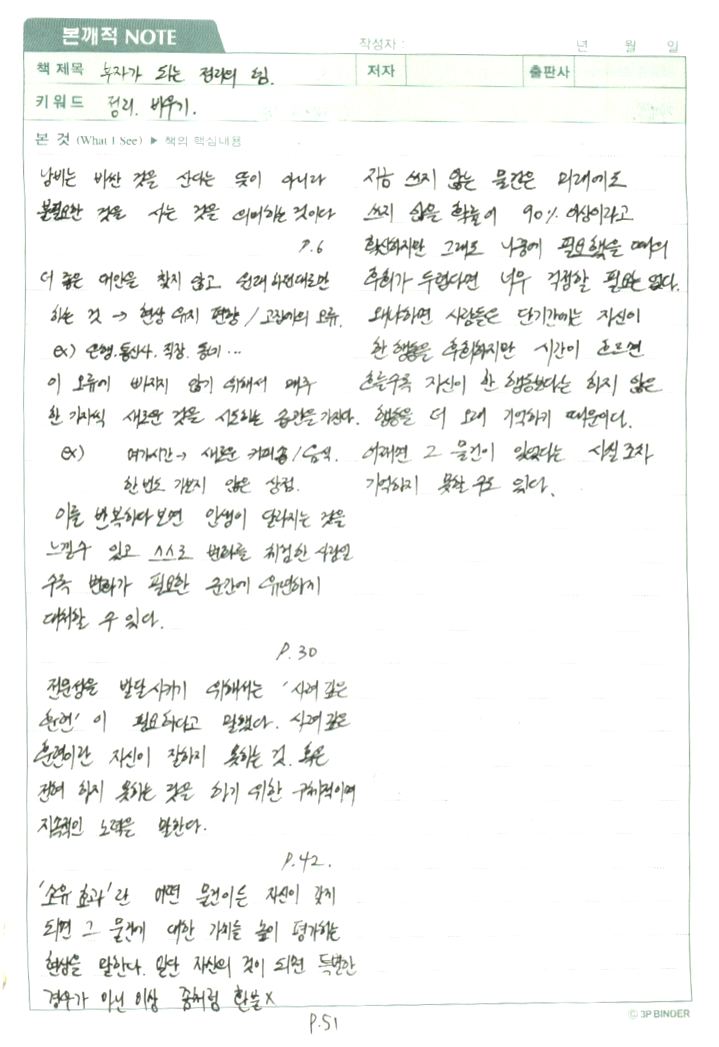 본깨적 NOTE
작성자 : 년 월 일
책 제목 부자가 되는 정리의 힘. 저자 출판사
키워드 정리. 비우기.
본 것 (What I See) ▶ 책의 핵심내용
낭비는 비싼 것을 산다는 뜻이 아니라
불필요한 것을 사는 것을 의미하는것이다
P.6
더 좋은 대안을 찾지 않고 원래 하던대로만
하는 것 → 현상 유지 편향 / 고집이의 오류.
ex) 은행. 통신사. 직장. 동네 ...
이 오류에 빠지지 않기 위해서 매주
한 가지씩 새로운 것을 시도하는 습관을 가진다.
ex) 여가시간 → 새로운 커피숍 / 음식.
한번도 가보지 않은 상점.
이를 반복하다보면 인생이 달라지는 것을
느낄수 있고 스스로 변화를 체험한 사람일
수록 변화가 필요한 순간에 유연하게
대처할 수 있다.
P.30
전문성을 발달시키기 위해서는 '사려 깊은
훈련' 이 필요하다고 말했다. 사려깊은
훈련이란 자신이 잘하지 못하는 것. 혹은
전혀 하지 못하는 것을 하기 위한 구체적이며
지속적인 노력을 말한다.
P.42.
'소유 효과'란 어떤 물건이든 자신이 갖게
되면 그 물건에 대한 가치를 높이 평가하는
현상을 말한다. 일단 자신의 것이 되면 특별한
경우가 아닌 이상 좀처럼 환불 X
P.51
지금 쓰지 않는 물건은 미래에도
쓰지 않을 확률이 90% 이상이라고
확신하지만 그래도 나중에 필요했을 때의
후회가 두렵다면 너무 걱정할 필요는 없다.
왜냐하면 사람들은 단기간에는 자신이
한 행동을 후회하지만 시간이 흐르면
흐를수록 자신이 한 행동보다는 하지 않은
행동을 더 오래 기억하기 때문이다.
어쩌면 그 물건이 있었다는 사실조차
기억하지 못할 수도 있다.
© 3P BINDER